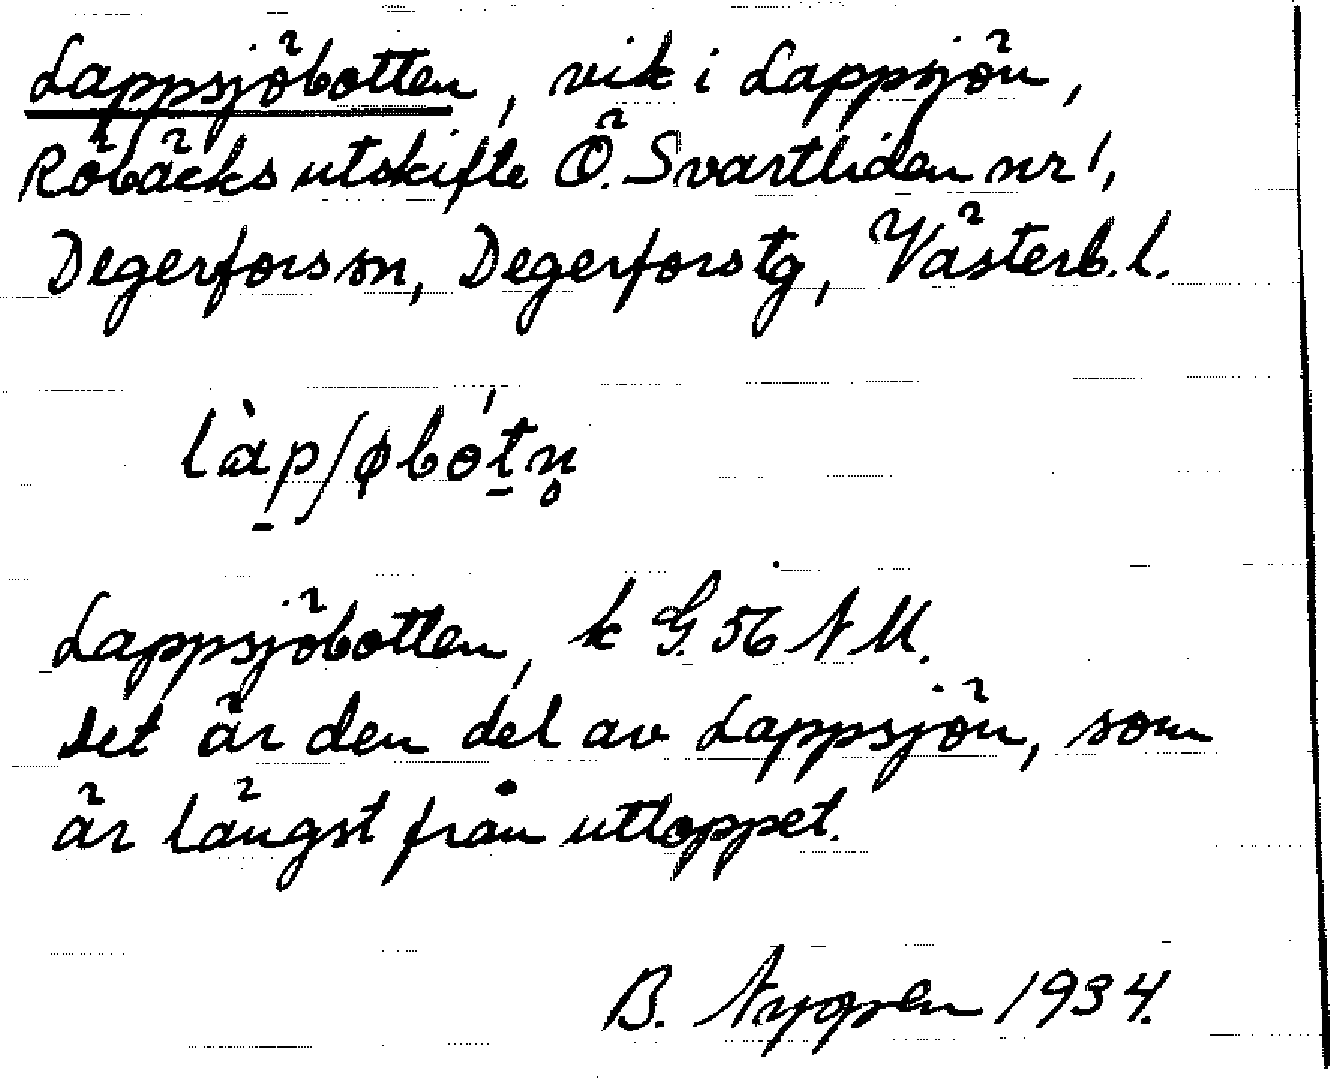 Lappsjöbotten, vik i Lappsjön,
Röbäcks utskifte Ö. Svartliden nr 1,
Degerfors sn, Degerfors tg, Västerb. l.
làpʃøbótn̥
Lappsjöbotten, k G. 56 N M.
Det är den del av Lappsjön, som
är längst från utloppet.
B. Nygren 1934.